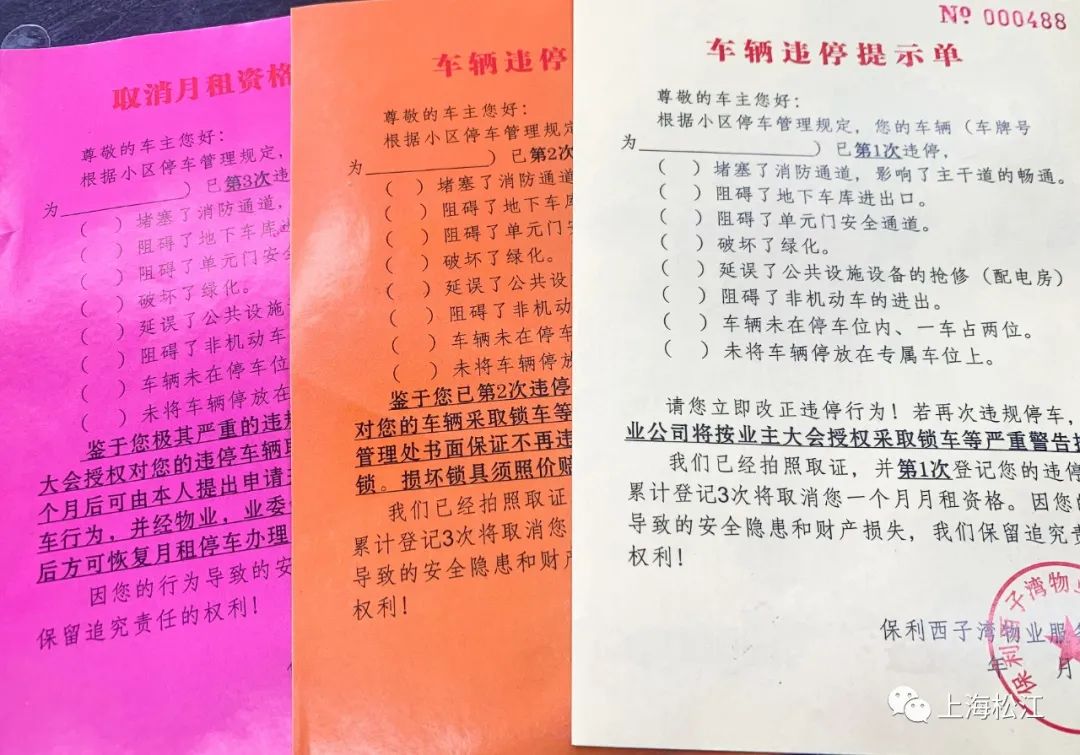 取消月租资格
尊敬的车主您好:
根据小区停车管理规定,
为____________) 已第3次违
( ) 堵塞了消防通道,
( ) 阻碍了地下车库进
( ) 阻碍了单元门安全
( ) 破坏了绿化。
( ) 延误了公共设施
( ) 阻碍了非机动车
( ) 车辆未在停车位
( ) 未将车辆停放在
鉴于您极其严重的违规
大会授权对您的违停车辆取
个月后可由本人提出申请并
车行为,并经物业,业委
后方可恢复月租停车办理
因您的行为导致的安
保留追究责任的权利!
车辆违停
尊敬的车主您好:
根据小区停车管理规定
为____________) 已第2次
( ) 堵塞了消防通道
( ) 阻碍了地下车库
( ) 阻碍了单元门安
( ) 破坏了绿化。
( ) 延误了公共设
( ) 阻碍了非机动
( ) 车辆未在停车
( ) 未将车辆停放
鉴于您已第2次违停
对您的车辆采取锁车等
管理处书面保证不再违
锁。损坏锁具须照价赔
我们已经拍照取证
累计登记3次将取消您
导致的安全隐患和财产
权利!
№ 000488
车辆违停提示单
尊敬的车主您好:
根据小区停车管理规定,您的车辆(车牌号
为____________) 已第1次违停,
( ) 堵塞了消防通道,影响了主干道的畅通。
( ) 阻碍了地下车库进出口。
( ) 阻碍了单元门安全通道。
( ) 破坏了绿化。
( ) 延误了公共设施设备的抢修(配电房)
( ) 阻碍了非机动车的进出。
( ) 车辆未在停车位内、一车占两位。
( ) 未将车辆停放在专属车位上。
请您立即改正违停行为!若再次违规停车,
业公司将按业主大会授权采取锁车等严重警告
我们已经拍照取证,并第1次登记您的违停
累计登记3次将取消您一个月月租资格。因您的
导致的安全隐患和财产损失,我们保留追究责
权利!
保利西子湾物业服务
年 月
保利西子湾物业
上海松江